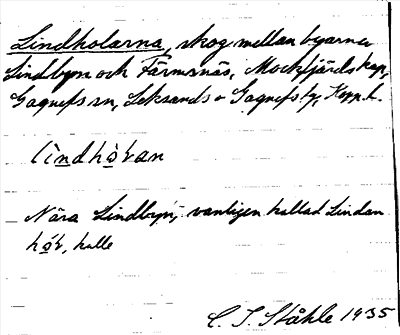 Lindholarna, skog mellan byarna
Lindbyn och Färmsnäs, Mockfjärds kap,
Gagnefs sn, Leksands o Gagnefs tg, Kopp. l.
lìndhò̱ɫan
Nära Lindbyn, vanligen kallad Lindan
hó̱ɫ, halle
C. I. Ståhle 1935